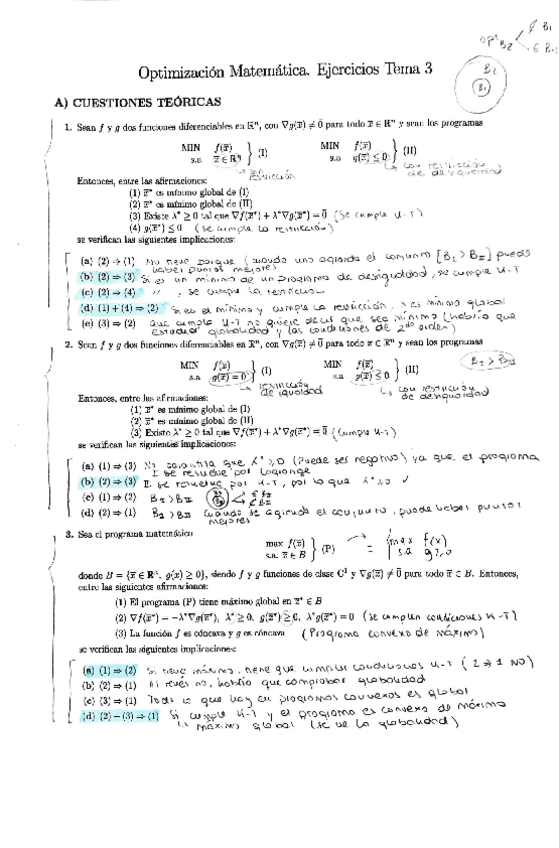 Optimización Matemática. Ejercicios Tema 3
A) CUESTIONES TEÓRICAS
1. Sean f y g dos funciones diferenciables en ℝⁿ, con ∇g(x̄) ≠ 0̄ para todo x̄ ∈ ℝⁿ y sean los programas
MIN f(x̄) s.a x̄ ∈ ℝⁿ } (I) MIN f(x̄) s.a g(x̄) ≤ 0 } (II)
sin restricción
con restricción de desigualdad
Entonces, entre las afirmaciones:
(1) x̄* es mínimo global de (I)
(2) x̄* es mínimo global de (II)
(3) Existe λ* ≥ 0 tal que ∇f(x̄*) + λ*∇g(x̄*) = 0̄ (se cumple K-T)
(4) g(x̄*) ≤ 0 (se cumple la restricción)
se verifican las siguientes implicaciones:
(a) (2) ⇒ (1) No tiene porque (cuando uno agranda el conjunto [B_I > B_II] puede
haber puntos mejores)
(b) (2) ⇒ (3) Si es un mínimo de un programa de desigualdad, se cumple K-T
(c) (2) ⇒ (4) " , se cumple la restricción
(d) (1) + (4) ⇒ (2) Si es el mínimo y cumple la restricción, es mínimo global
(e) (3) ⇒ (2) que cumpla K-T no quiere decir que sea mínimo (habría que
estudiar globalidad y las condiciones de 2º orden)
2. Sean f y g dos funciones diferenciables en ℝⁿ, con ∇g(x̄) ≠ 0̄ para todo x̄ ∈ ℝⁿ y sean los programas
MIN f(x̄) s.a g(x̄) = 0 } (I) MIN f(x̄) s.a g(x̄) ≤ 0 } (II)
restricción de igualdad
con restricción de desigualdad
Entonces, entre las afirmaciones:
(1) x̄* es mínimo global de (I)
(2) x̄* es mínimo global de (II)
(3) Existe λ* ≥ 0 tal que ∇f(x̄*) + λ*∇g(x̄*) = 0̄ (cumple K-T)
se verifican las siguientes implicaciones:
(a) (1) ⇒ (3) No garantiza que λ* ≥ 0 (Puede ser negativo) ya que el programa
I se resuelve por Lagrange
(b) (2) ⇒ (3) II se resuelve por K-T, por lo que λ* ≥ 0 ✓
(c) (1) ⇒ (2)
(d) (2) ⇒ (1) cuando se agranda el conjunto, puede haber puntos
mejores
3. Sea el programa matemático
max f(x̄) s.a. x̄ ∈ B } (P) = { max f(x) s.a g ≥ 0
donde B = {x̄ ∈ ℝⁿ, g(x̄) ≥ 0}, siendo f y g funciones de clase C¹ y ∇g(x̄) ≠ 0̄ para todo x̄ ∈ B. Entonces,
entre las siguientes afirmaciones:
(1) El programa (P) tiene máximo global en x̄* ∈ B
(2) ∇f(x̄*) = −λ*∇g(x̄*), λ* ≥ 0, g(x̄*) ≥ 0, λ*g(x̄*) = 0 (se cumplen condiciones K-T)
(3) La función f es cóncava y g es cóncava (Programa convexo de máximo)
se verifican las siguientes implicaciones:
(a) (1) ⇒ (2) Si tiene máximo, tiene que cumplir condiciones K-T (2 ⇒ 1 NO)
(b) (2) ⇒ (1) Al revés no, habría que comprobar globalidad
(c) (3) ⇒ (1) Todo lo que hay en programas convexos es global
(d) (2) + (3) ⇒ (1) Si cumple K-T y el programa es convexo de máximo
máximo global (se ve la globalidad)